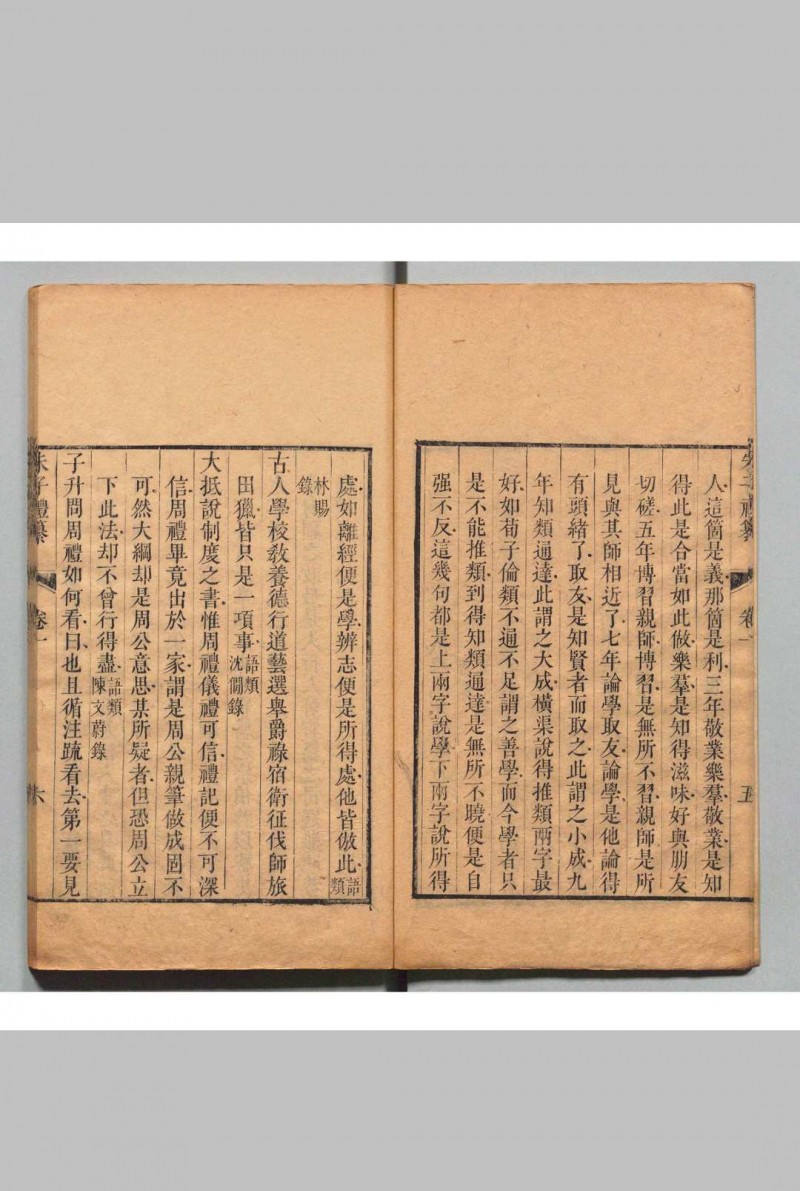 朱子禮纂 卷一 五
人這箇是義那箇是利三年敬業樂羣敬業是知
得此是合當如此做樂羣是知得滋味好與朋友
切磋五年博習親師博習是無所不習親師是所
見與其師相近了七年論學取友論學是他論得
有頭緒了取友是知賢者而取之此謂之小成九
年知類通達此謂之大成橫渠說得推類兩字最
好如荀子倫類不通不足謂之善學而今學者只
是不能推類到得知類通達是無所不曉便是自
强不反這幾句都是上兩字說學下兩字說所得
處如離經便是學辨志便是所得處他皆倣此語類
林賜錄
古人學校敎養德行道藝選舉爵祿宿衛征伐師旅
田獵皆只是一項事語類沈僴錄
大抵說制度之書惟周禮儀禮可信禮記便不可深
信周禮畢竟出於一家謂是周公親筆做成固不
可然大綱却是周公意思某所疑者但恐周公立
下此法却不曾行得盡語類陳文蔚錄
子升問周禮如何看曰也且循注疏看去第一要見
朱子禮纂 卷一 六